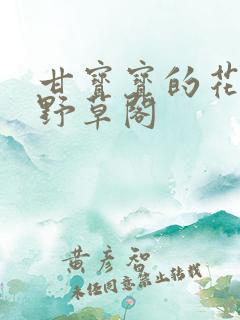 甘寶寶的花
野草閣
黃彥智
未经同意禁止转载